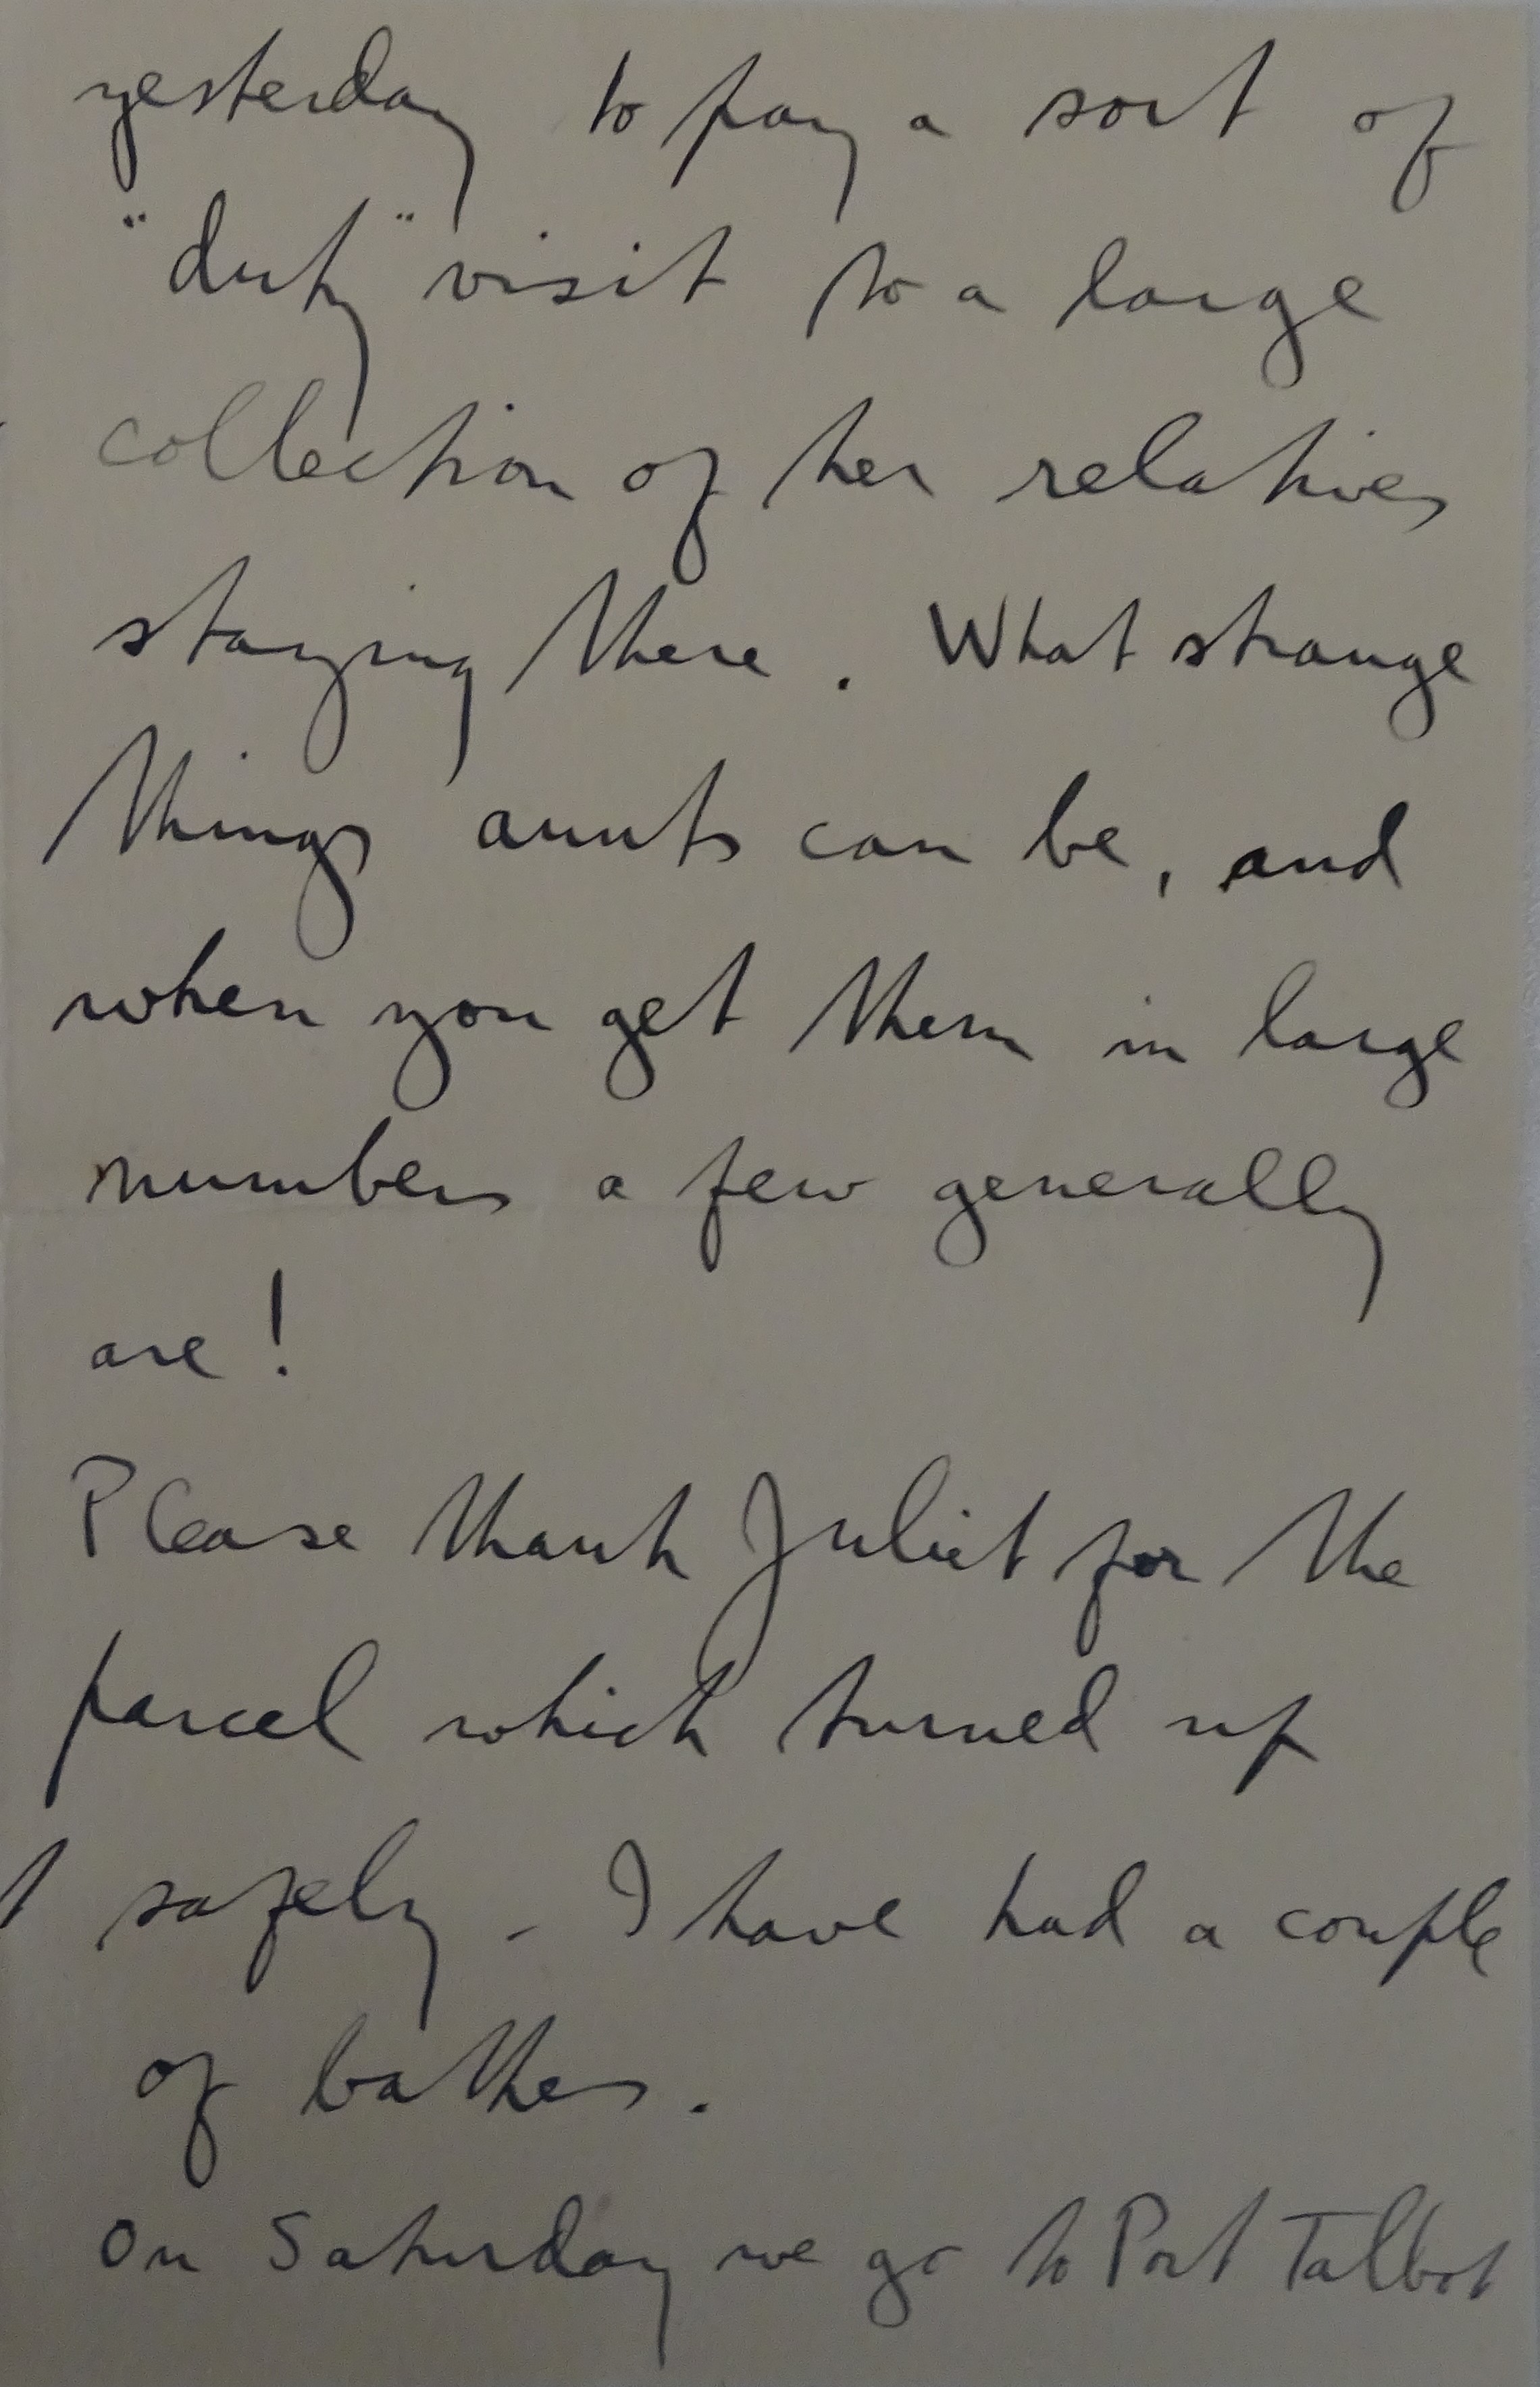 yesterday to pay a sort of
"duty" visit to a large
collection of her relatives
staying there. What strange
things aunts can be, and
when you get them in large
numbers a few generally
are!
Please thank Juliet for the
parcel which turned up
safely - I have had a couple
of bathes.
On Saturday we go to Port Talbot